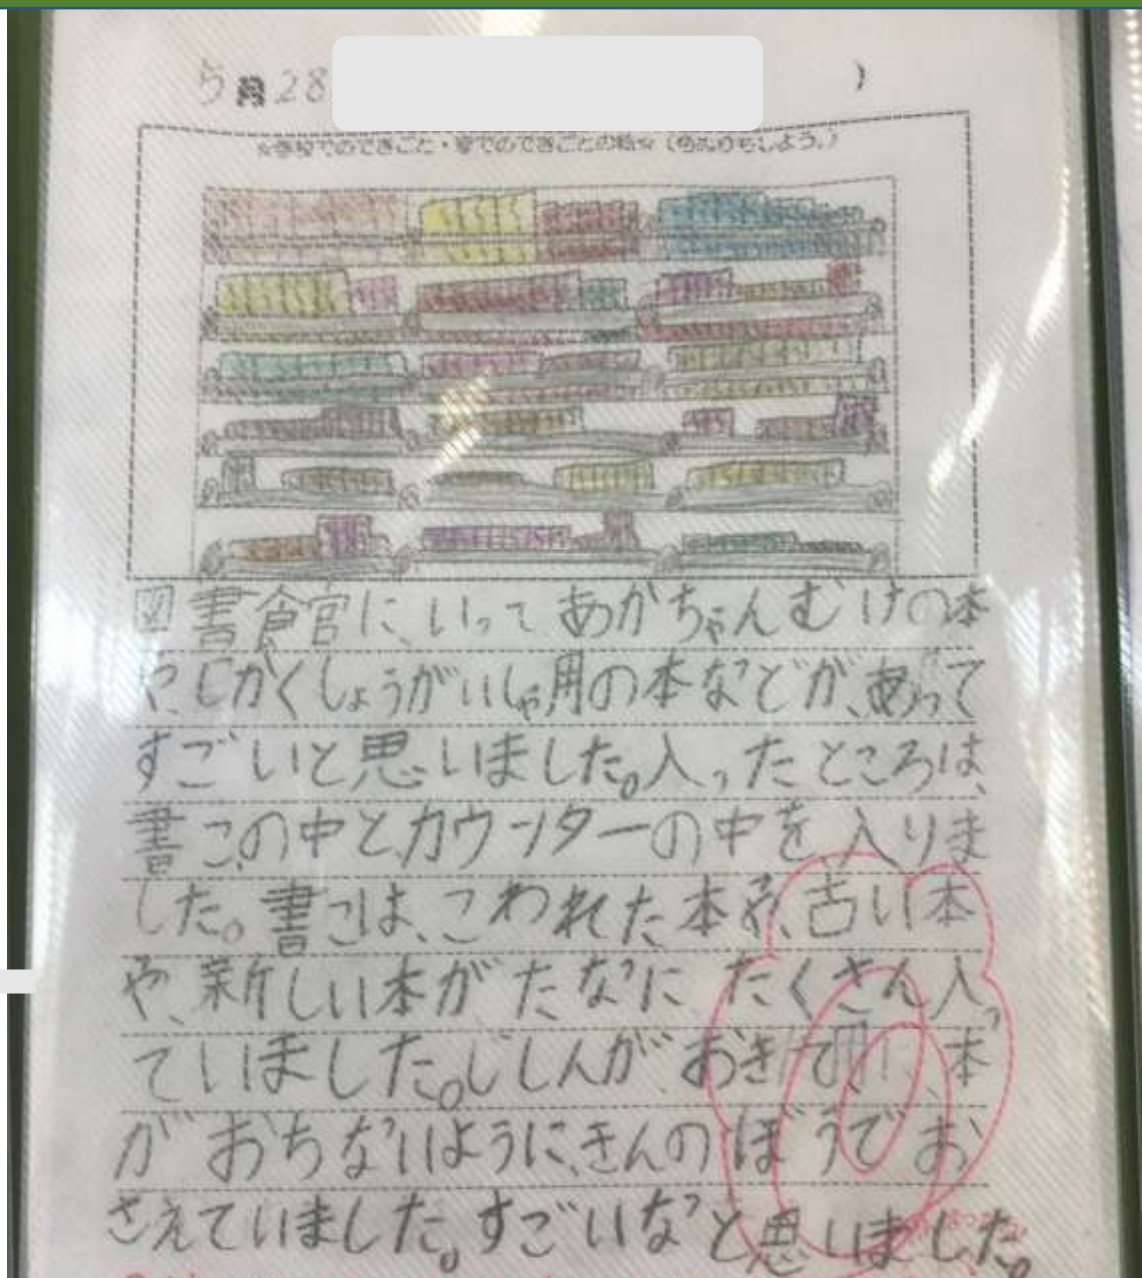 5月28
)
☆学校でのできごと・家でのできごとの絵☆(色ぬりもしよう。)
図書館に、いって、あかちゃんむけの本
や、しかくしょうがいしゃ用の本などが、あって
すごいと思いました。入ったところは、
書この中とカウンターの中を入りま
した。書こは、こわれた本や、古い本
や、新しい本がたなに、たくさん入っ
ていました。じしんが、おきて、本
が、おちないように、きんのぼうでお
さえていました。すごいなと思いました。